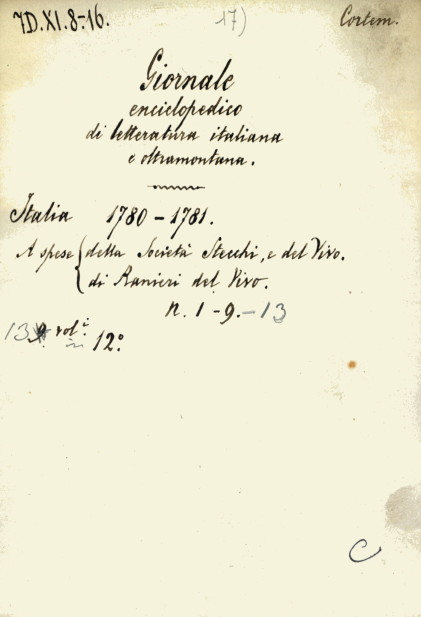 7D.XI.8-16.
17)
Cortem.
Giornale
enciclopedico
di letteratura italiana
e oltramontana.
Italia 1780 - 1781.
A spese { della Società Stecchi, e del Vivo.
di Ranieri del Vivo.
n. 1 - 9. - 13
13 9. vol.i in 12°.
C